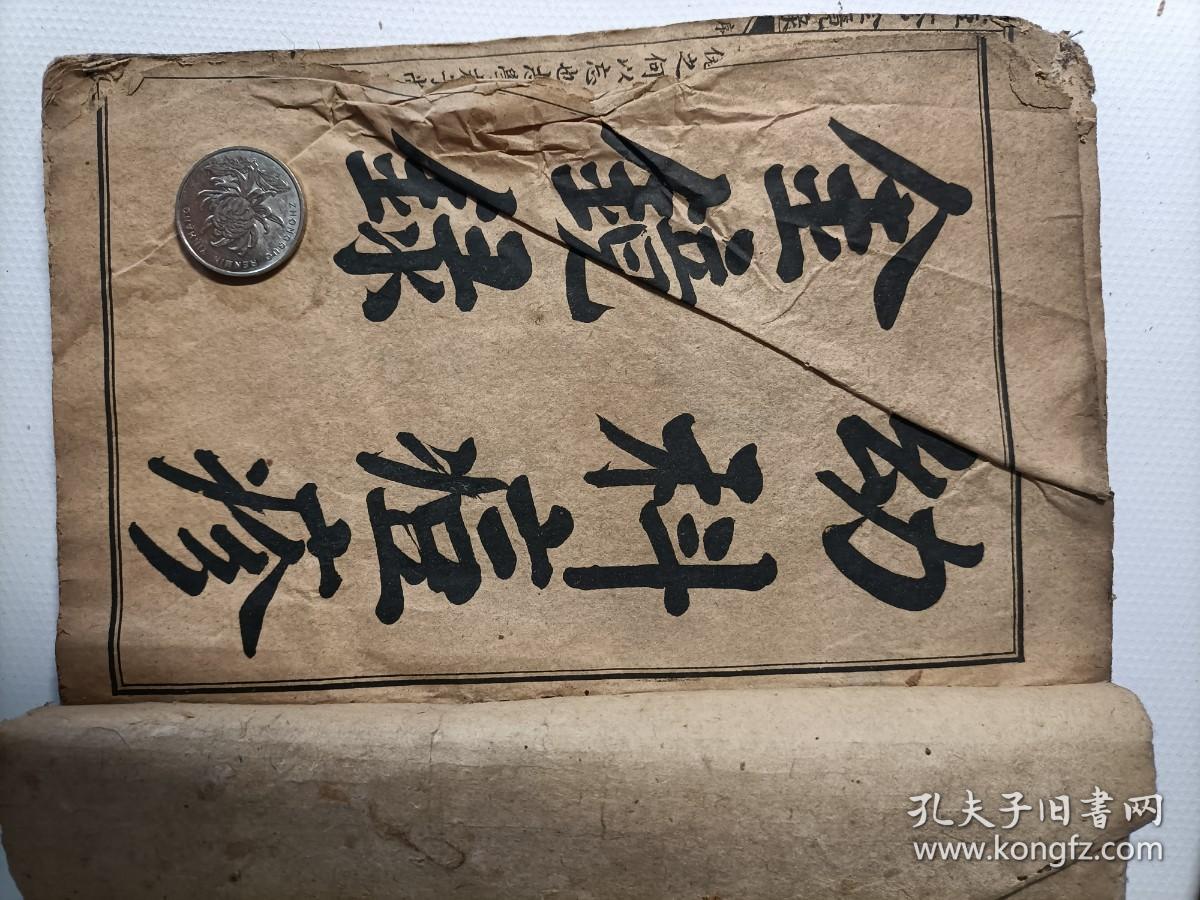 幼科痘疹
金鏡錄
ZHONGGUO RENMIN YINHANG
孔夫子旧書网
www.kongfz.com